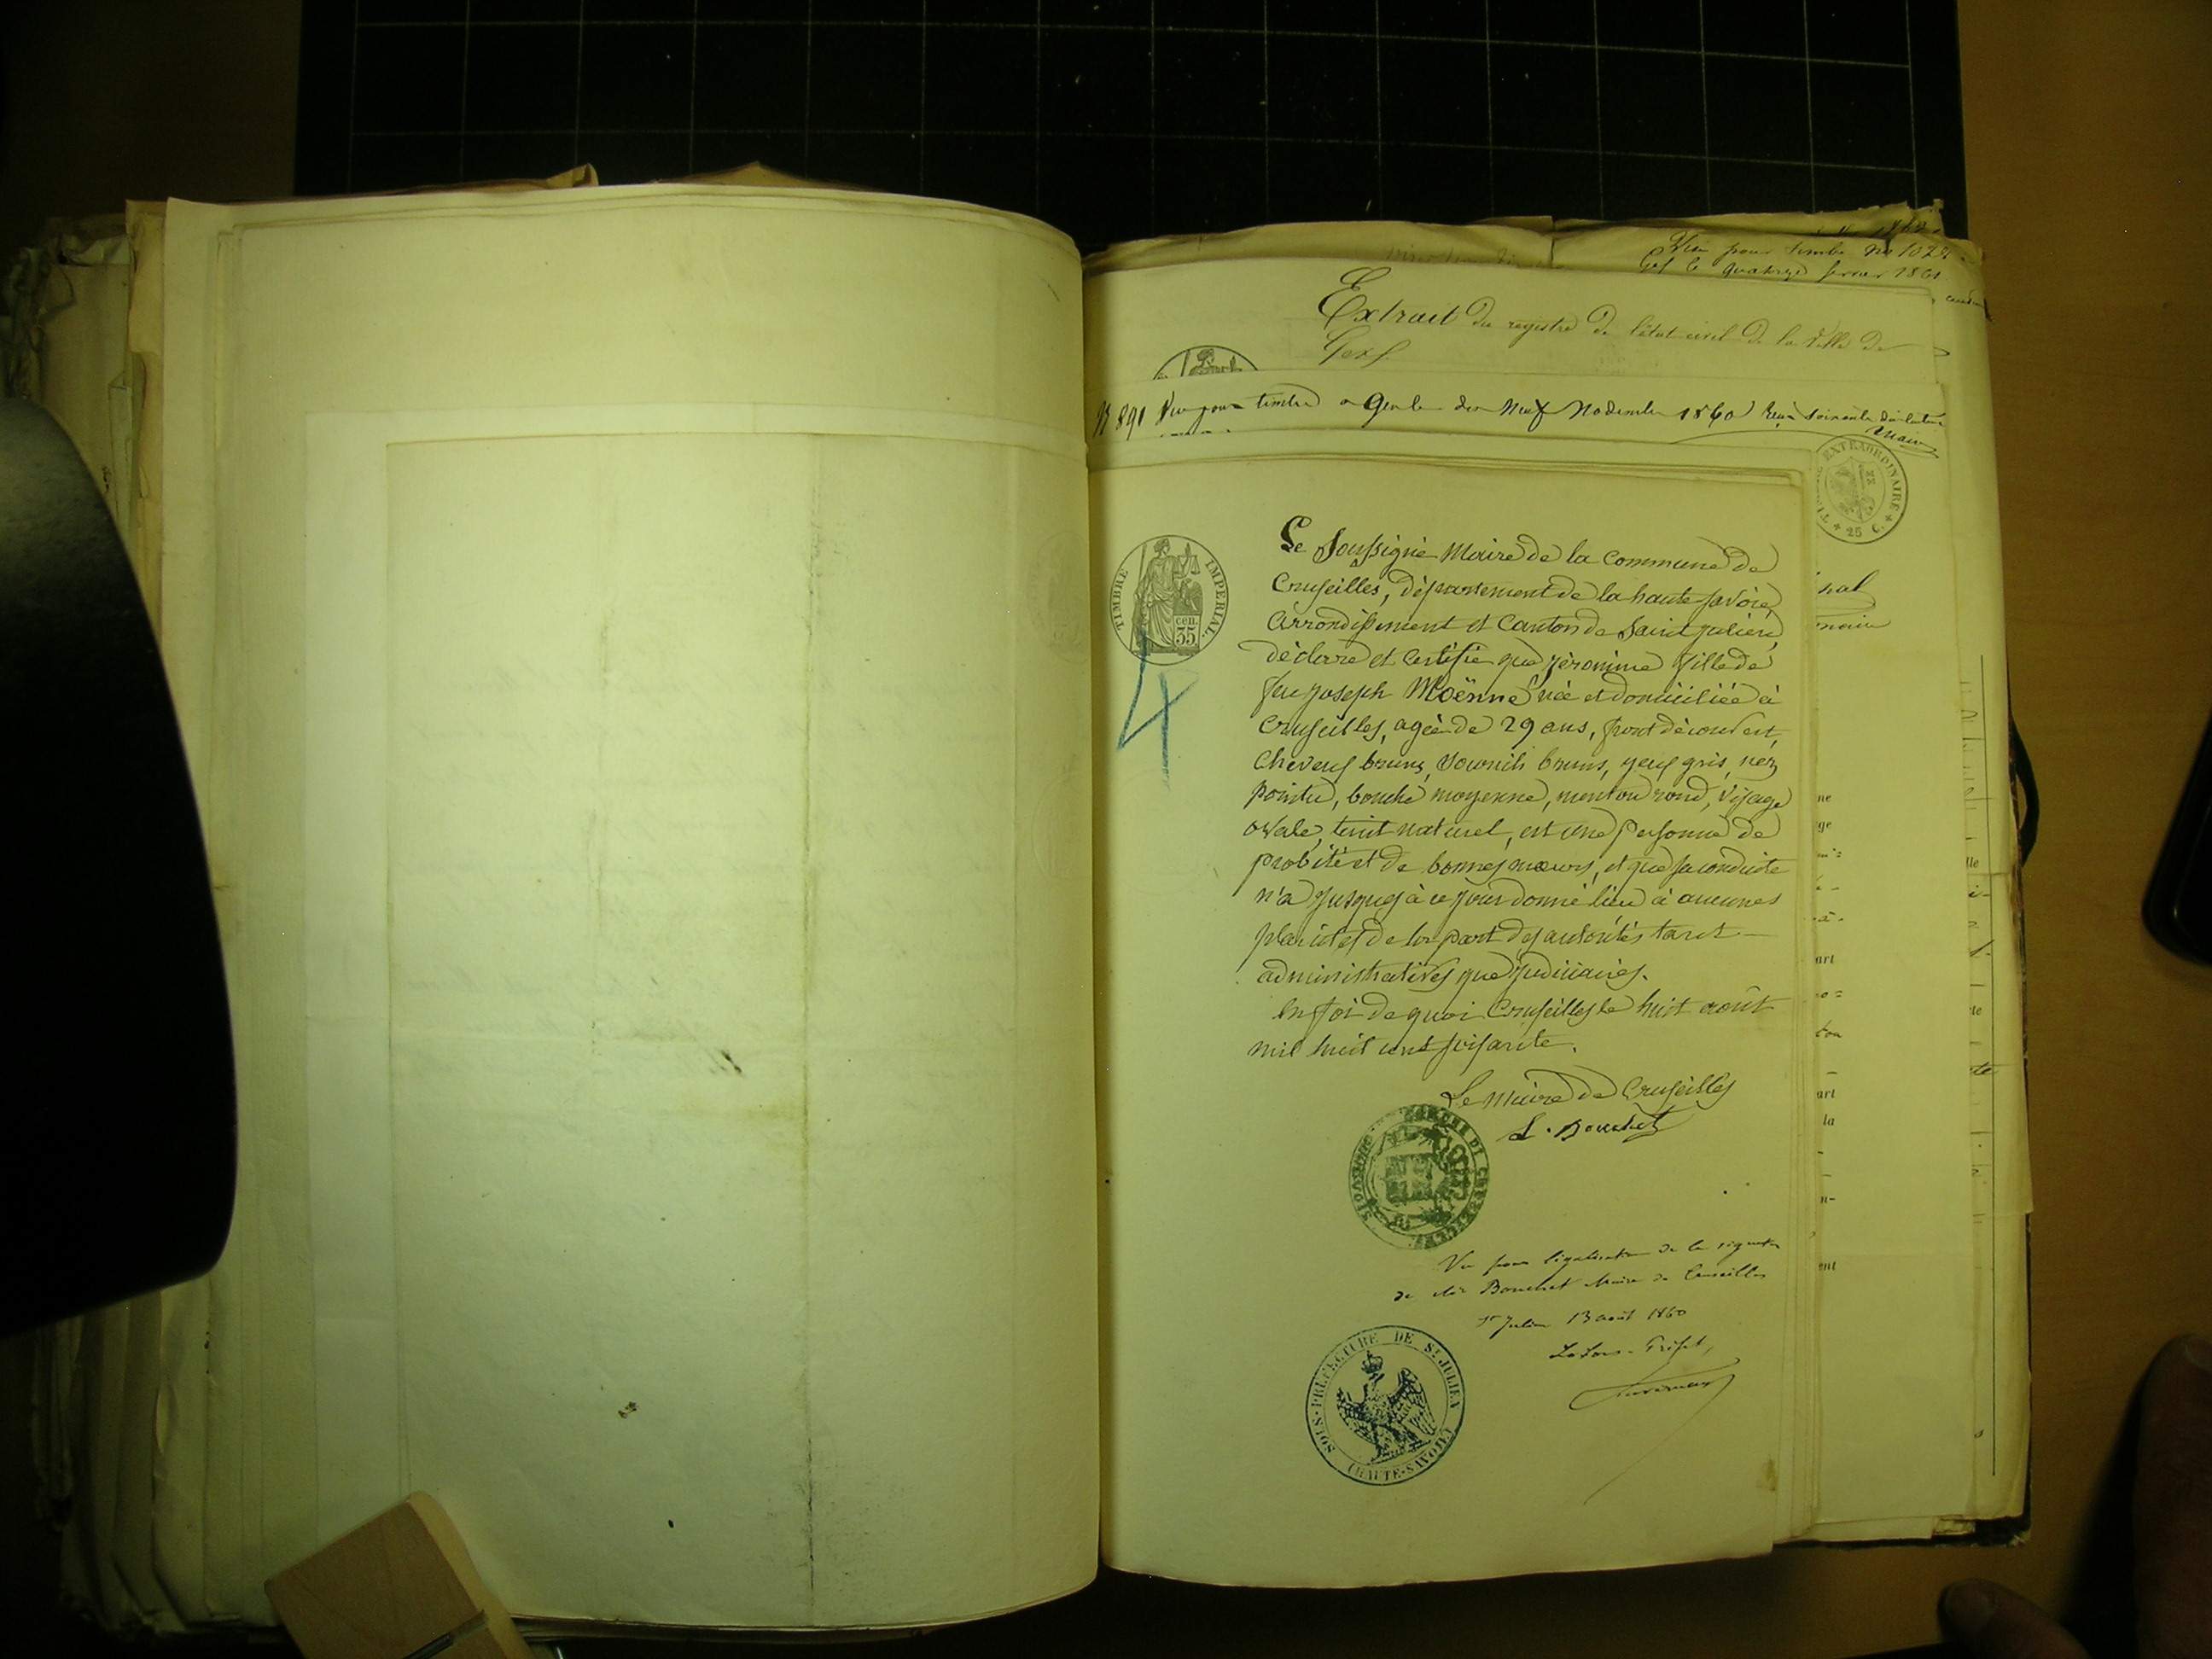 Vu pour timbre No 1021
Gex le quatorze fevrier 1861
Extrait du registre de l'état civil de la ville de
Gex
No 891 Vu pour timbre a Genève du Neuf Novembre 1860 Reçu soixante
EXTRAORDINAIRE
25 C.
TIMBRE IMPERIAL
cen.
35
4
Le Soussigné Maire de la commune de
Cruseilles, département de la haute savoie,
arrondissement et Canton de Saint julien,
déclare et certifie que jéronime fille de
feu joseph Moënne née et domiciliée à
Cruseilles, agée de 29 ans, front découvert,
cheveux bruns, sourcils bruns, yeux gris, nez
pointu, bouche moyenne, menton rond, visage
ovale, teint naturel, est une personne de
probité et de bonnes mœurs, et que sa conduite
n'a jusques à ce jour donné lieu à aucunes
plaintes de la part des autorités tant
administratives que judiciaires.
En foi de quoi Cruseilles le huit août
mil huit cent soixante.
Le Maire de Cruseilles
L. Bouchet
Vu pour légalisation de la signature
de Mr Bouchet Maire de Cruseilles
St Julien 13 août 1860
Le Sous-Préfet,
SOUS-PRÉFECTURE DE ST JULIEN
(HAUTE-SAVOIE)